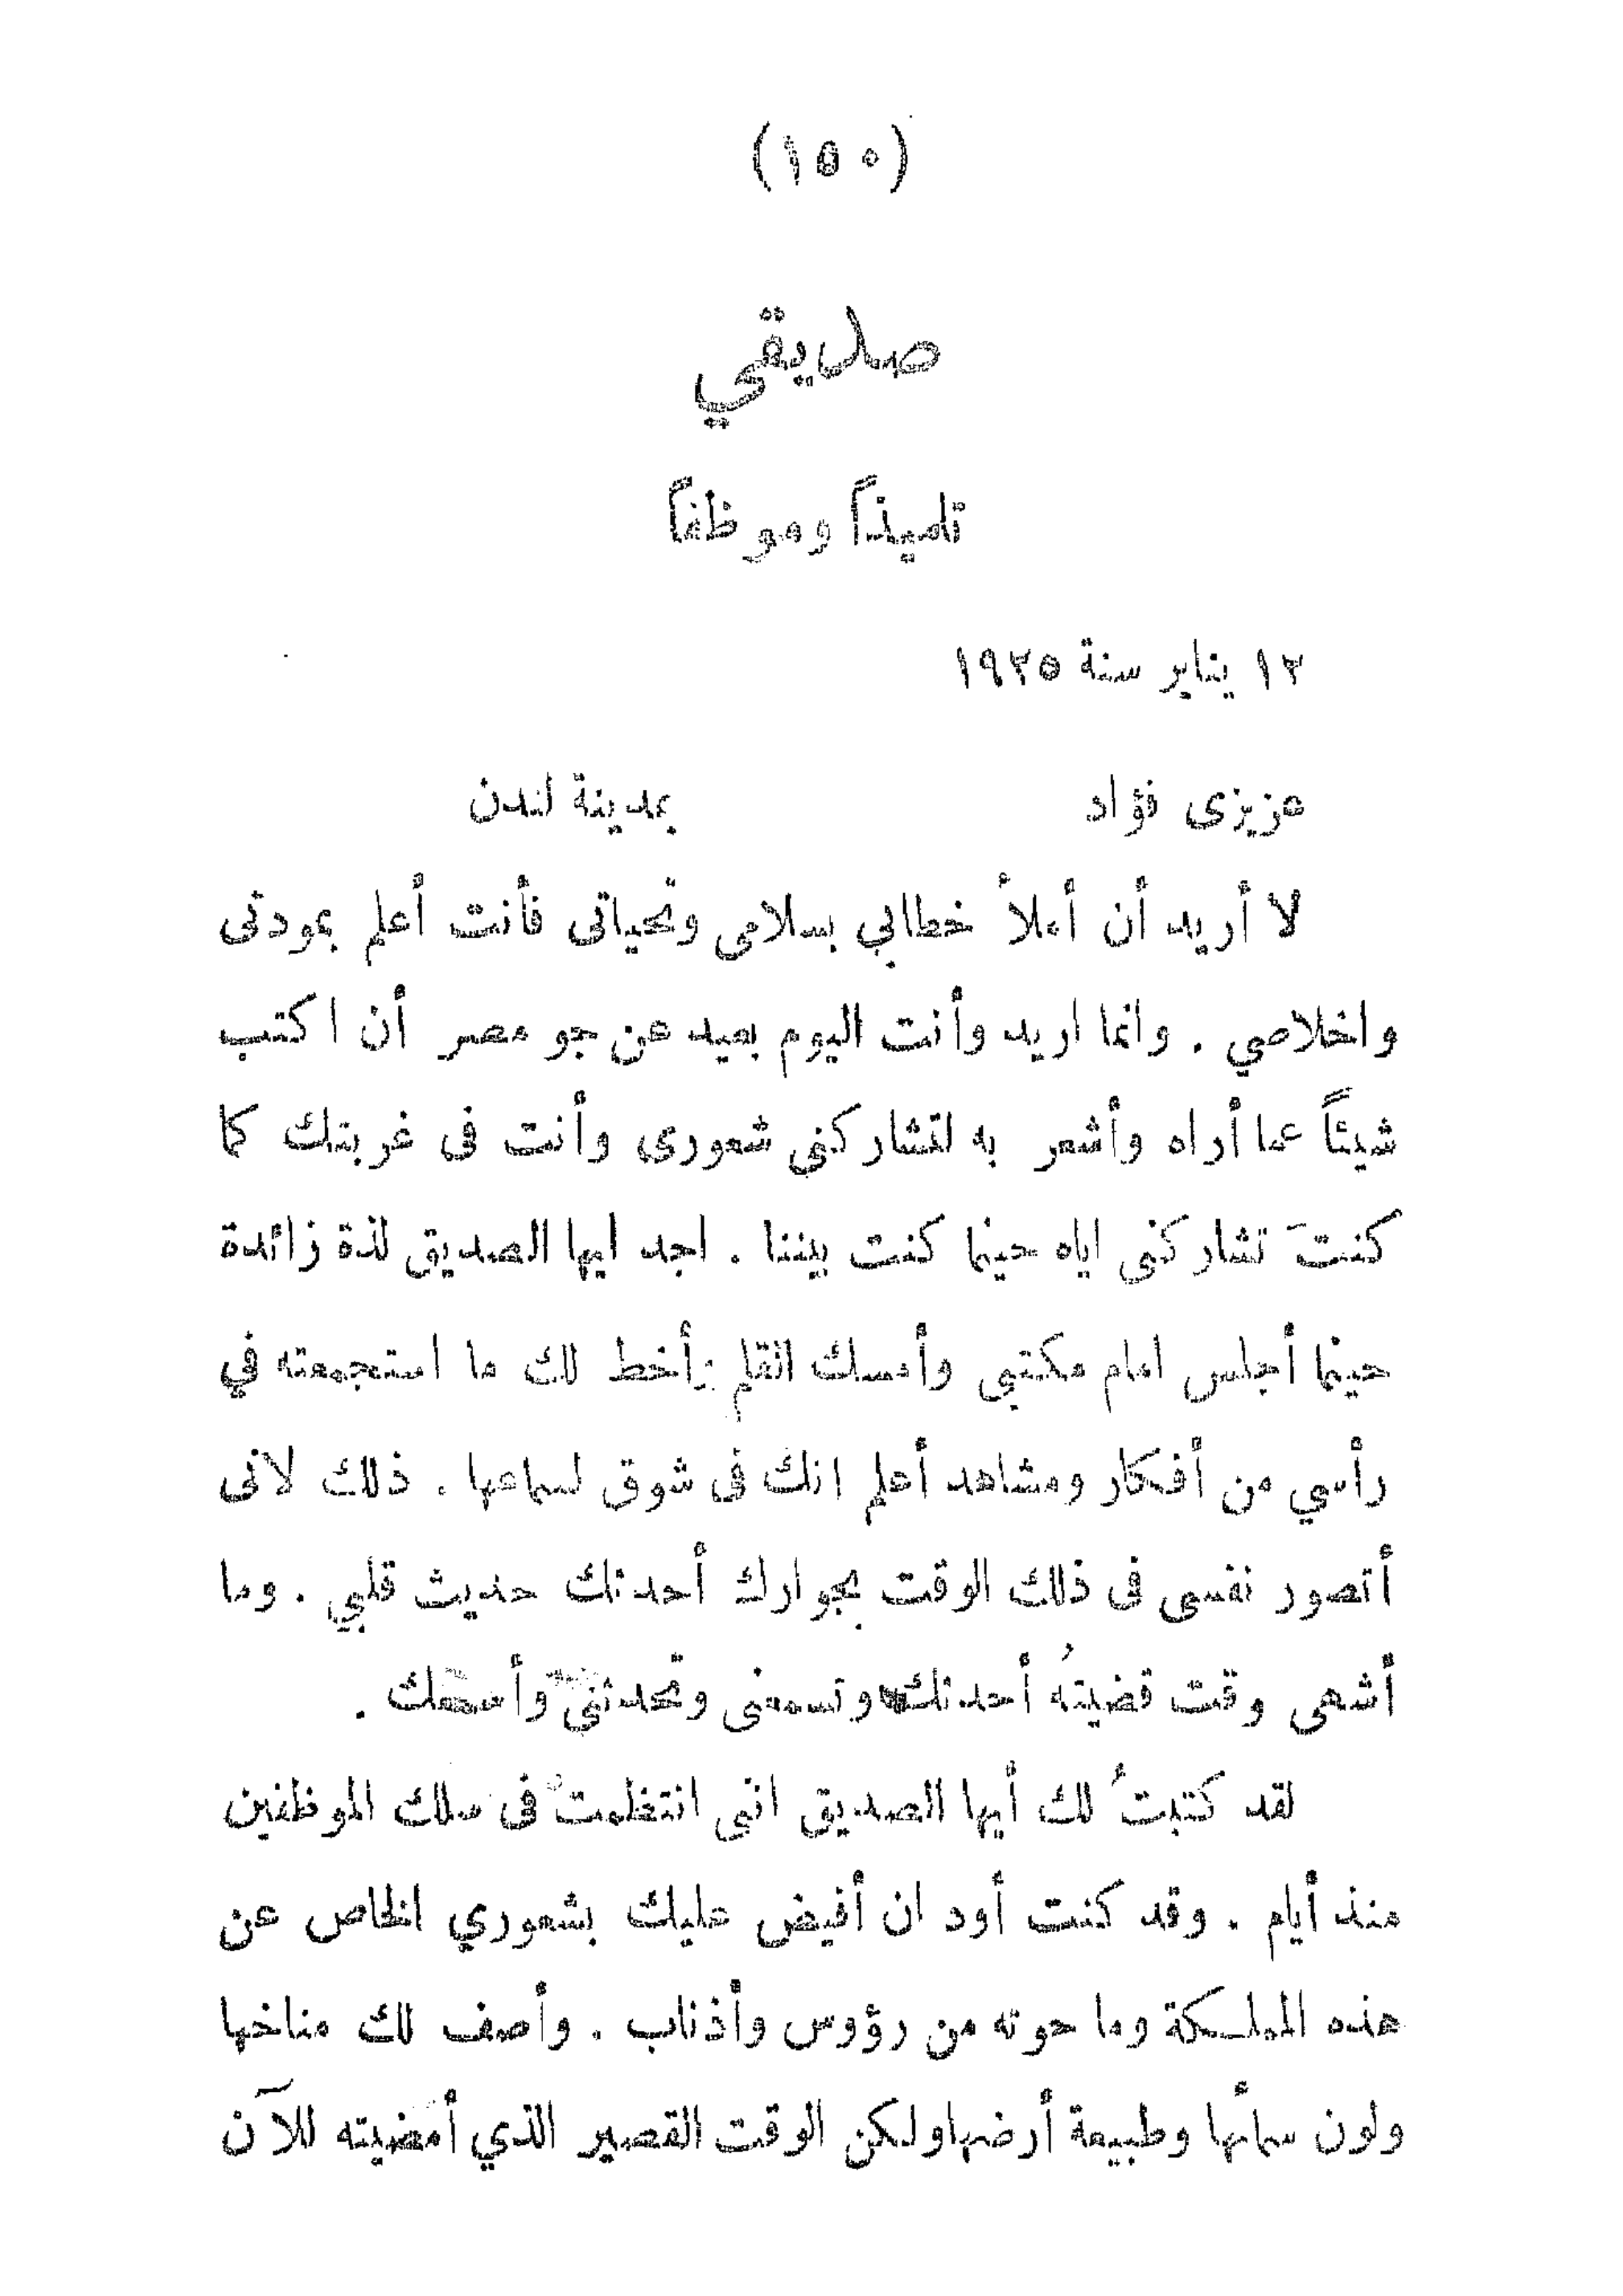 (١٥٠)
صديقي
تلميذاً وموظفاً
١٢ يناير سنة ١٩٢٥
عزيزى فؤاد بمدينة لندن
لا أريد أن أملأ خطابي بسلامى وتحياتى فأنت أعلم بمودتى
واخلاصي . وانما اريد وأنت اليوم بعيد عن جو مصر أن اكتب
شيئاً عما أراه وأشعر به لتشاركنى شعورى وأنت فى غربتك كما
كنتَ تشاركنى اياه حينما كنت بيننا . اجد ايها الصديق لذة زائدة
حينما أجلس امام مكتبى وأمسك القلم وأخط لك ما استجمعته في
رأسي من أفكار ومشاهد أعلم انك فى شوق لسماعها . ذلك لانى
أتصور نفسى فى ذلك الوقت بجوارك أحدثك حديث قلبي . وما
أشهى وقت قضيتهُ أحدثك وتسمعنى وتحدثنى وأسمعك .
لقد كتبتُ لك أيها الصديق اننى انتظمتُ فى سلك الموظفين
منذ أيام . وقد كنت أود ان أفيض عليك بشعوري الخاص عن
هذه المملكة وما حوته من رؤوس وأذناب . وأصف لك مناخها
ولون سمائها وطبيعة أرضها ولكن الوقت القصير الذي أمضيته للآن